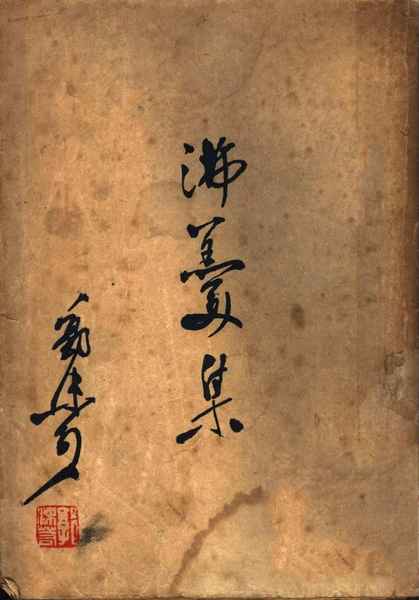 沸羹集
郭沫若